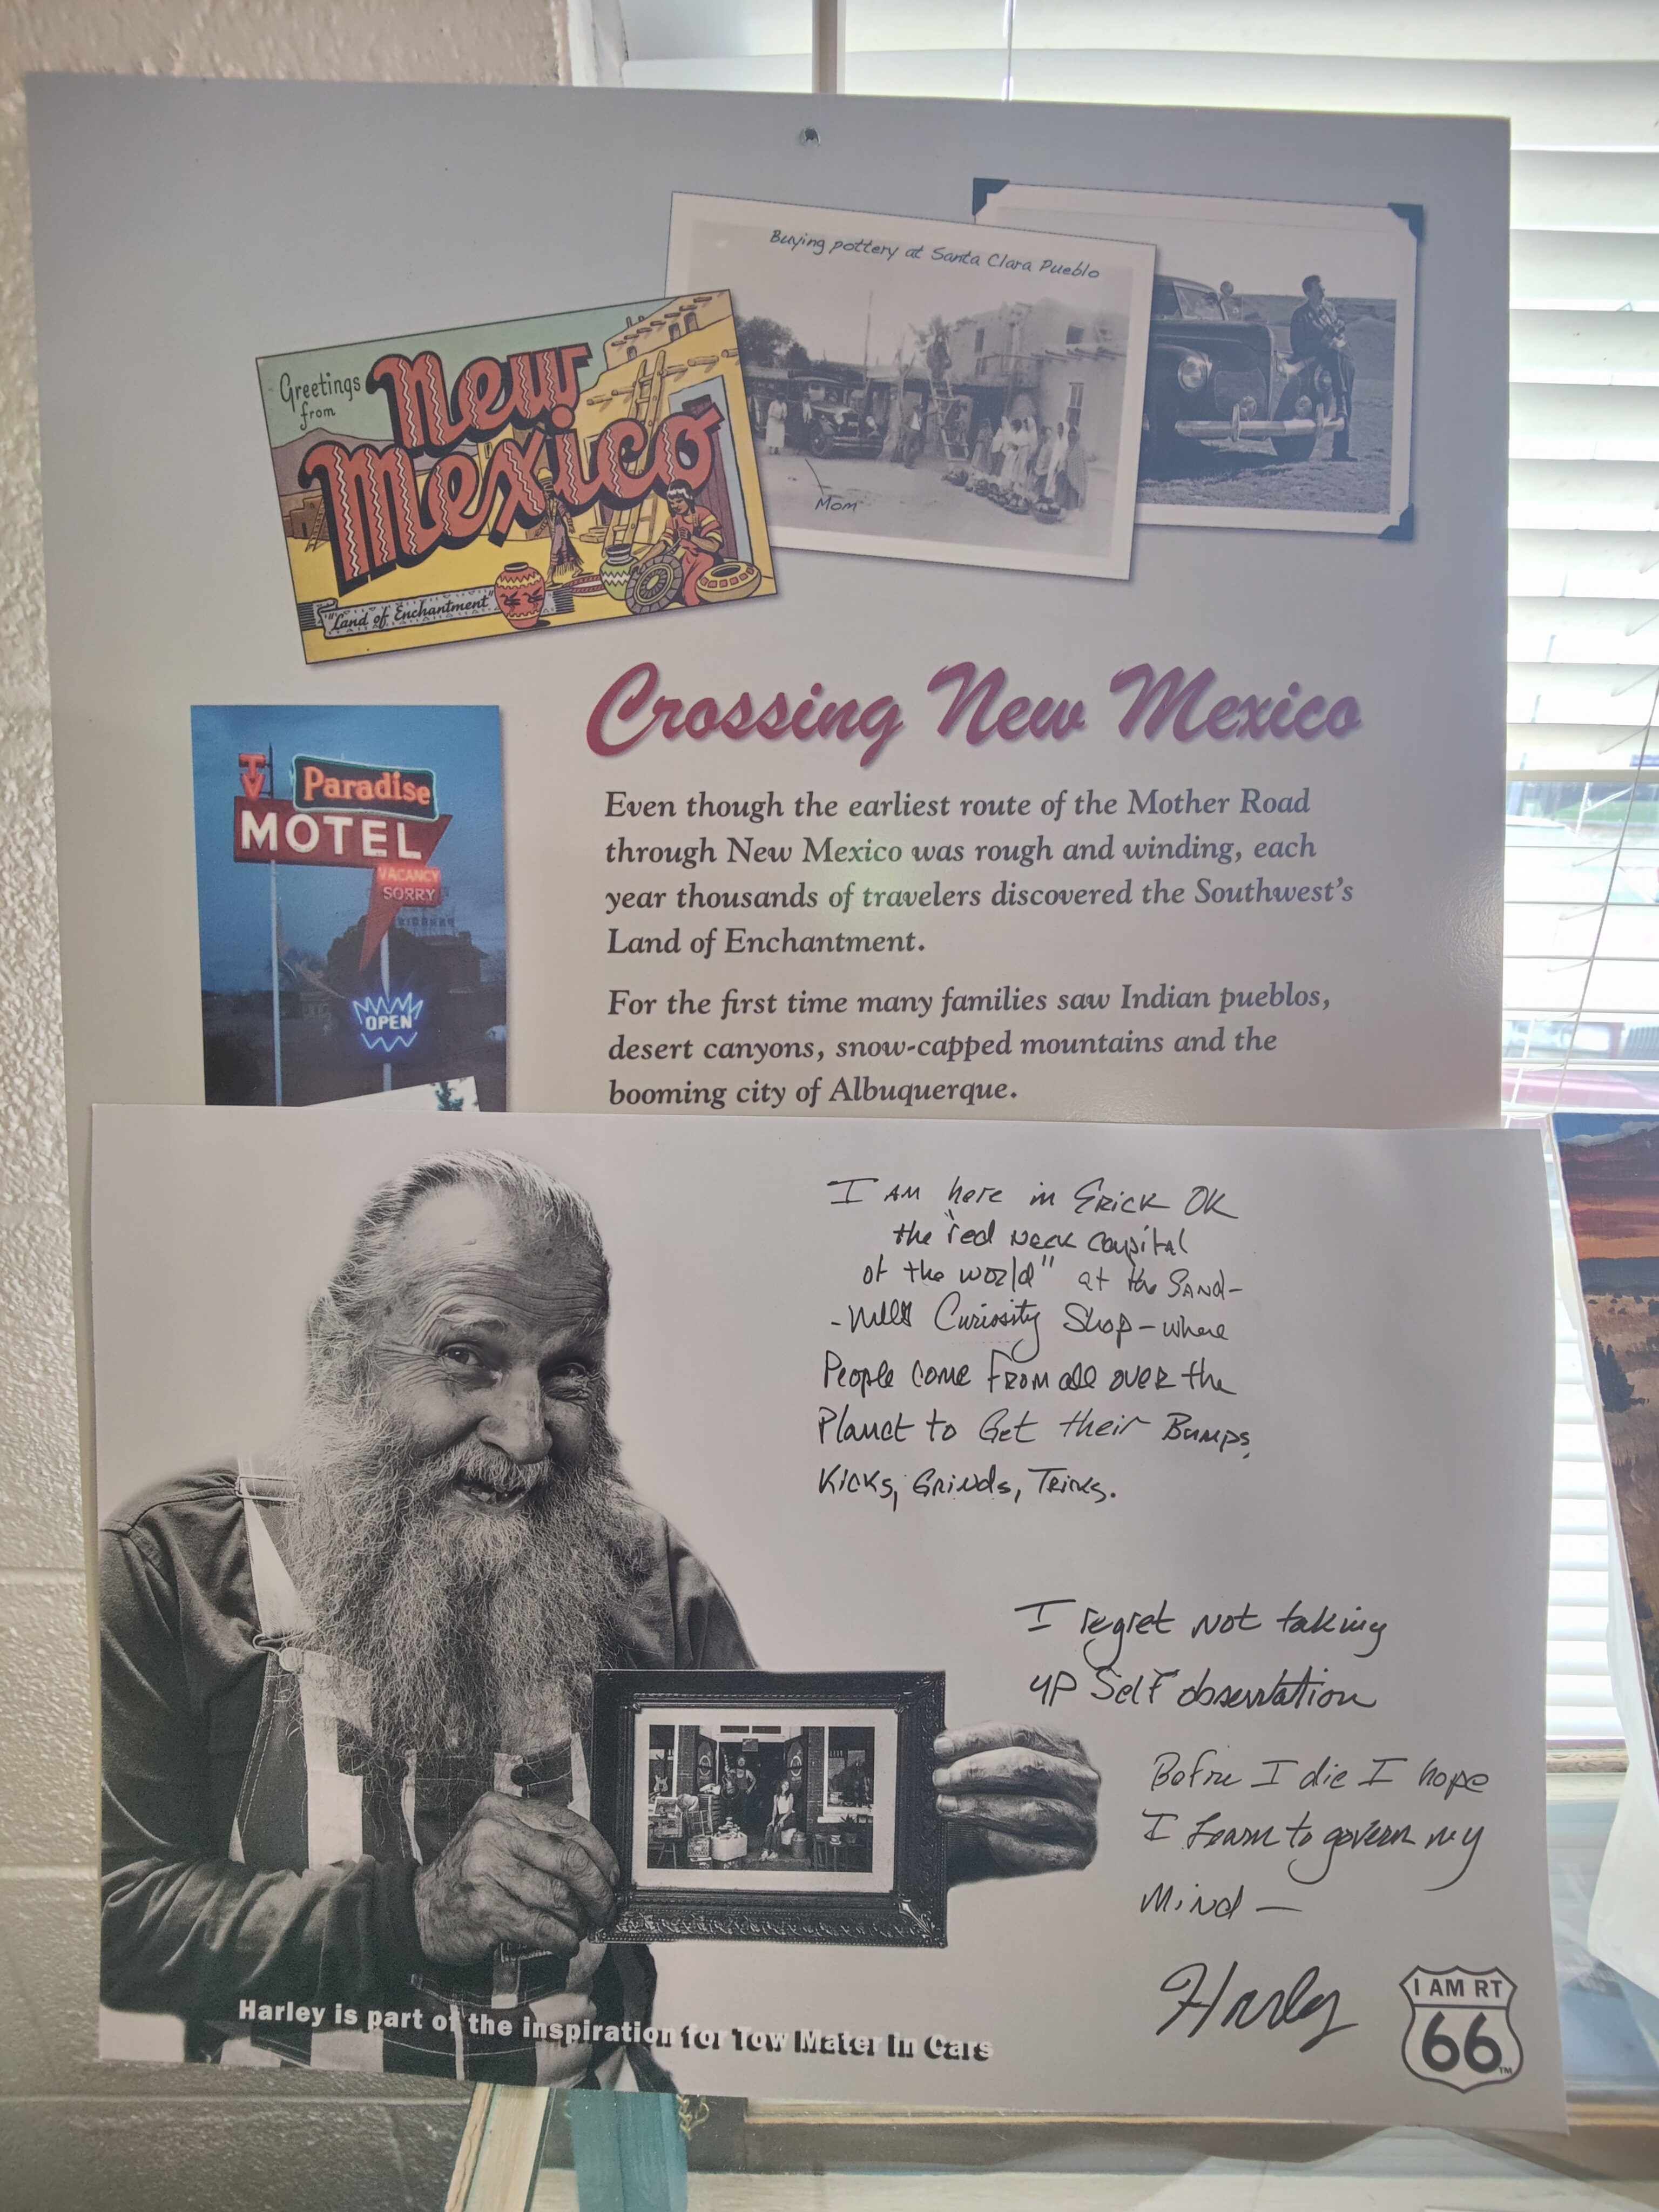 Buying pottery at Santa Clara Pueblo
Mom
Greetings
from
New
Mexico
"Land of Enchantment"
Crossing New Mexico
TV
Paradise
MOTEL
VACANCY
SORRY
OPEN
Even though the earliest route of the Mother Road
through New Mexico was rough and winding, each
year thousands of travelers discovered the Southwest's
Land of Enchantment.
For the first time many families saw Indian pueblos,
desert canyons, snow-capped mountains and the
booming city of Albuquerque.
I AM here in Erick OK
the "red neck capital
of the world" at the SAND-
-Hills Curiosity Shop - where
People come FROM all over the
Planet to Get their Bumps,
Kicks, Grinds, Tricks.
I regret not taking
up Self observation
Before I die I hope
I learn to govern my
Mind —
Harley
Harley is part of the inspiration for Tow Mater in Cars
I AM RT
66
TM